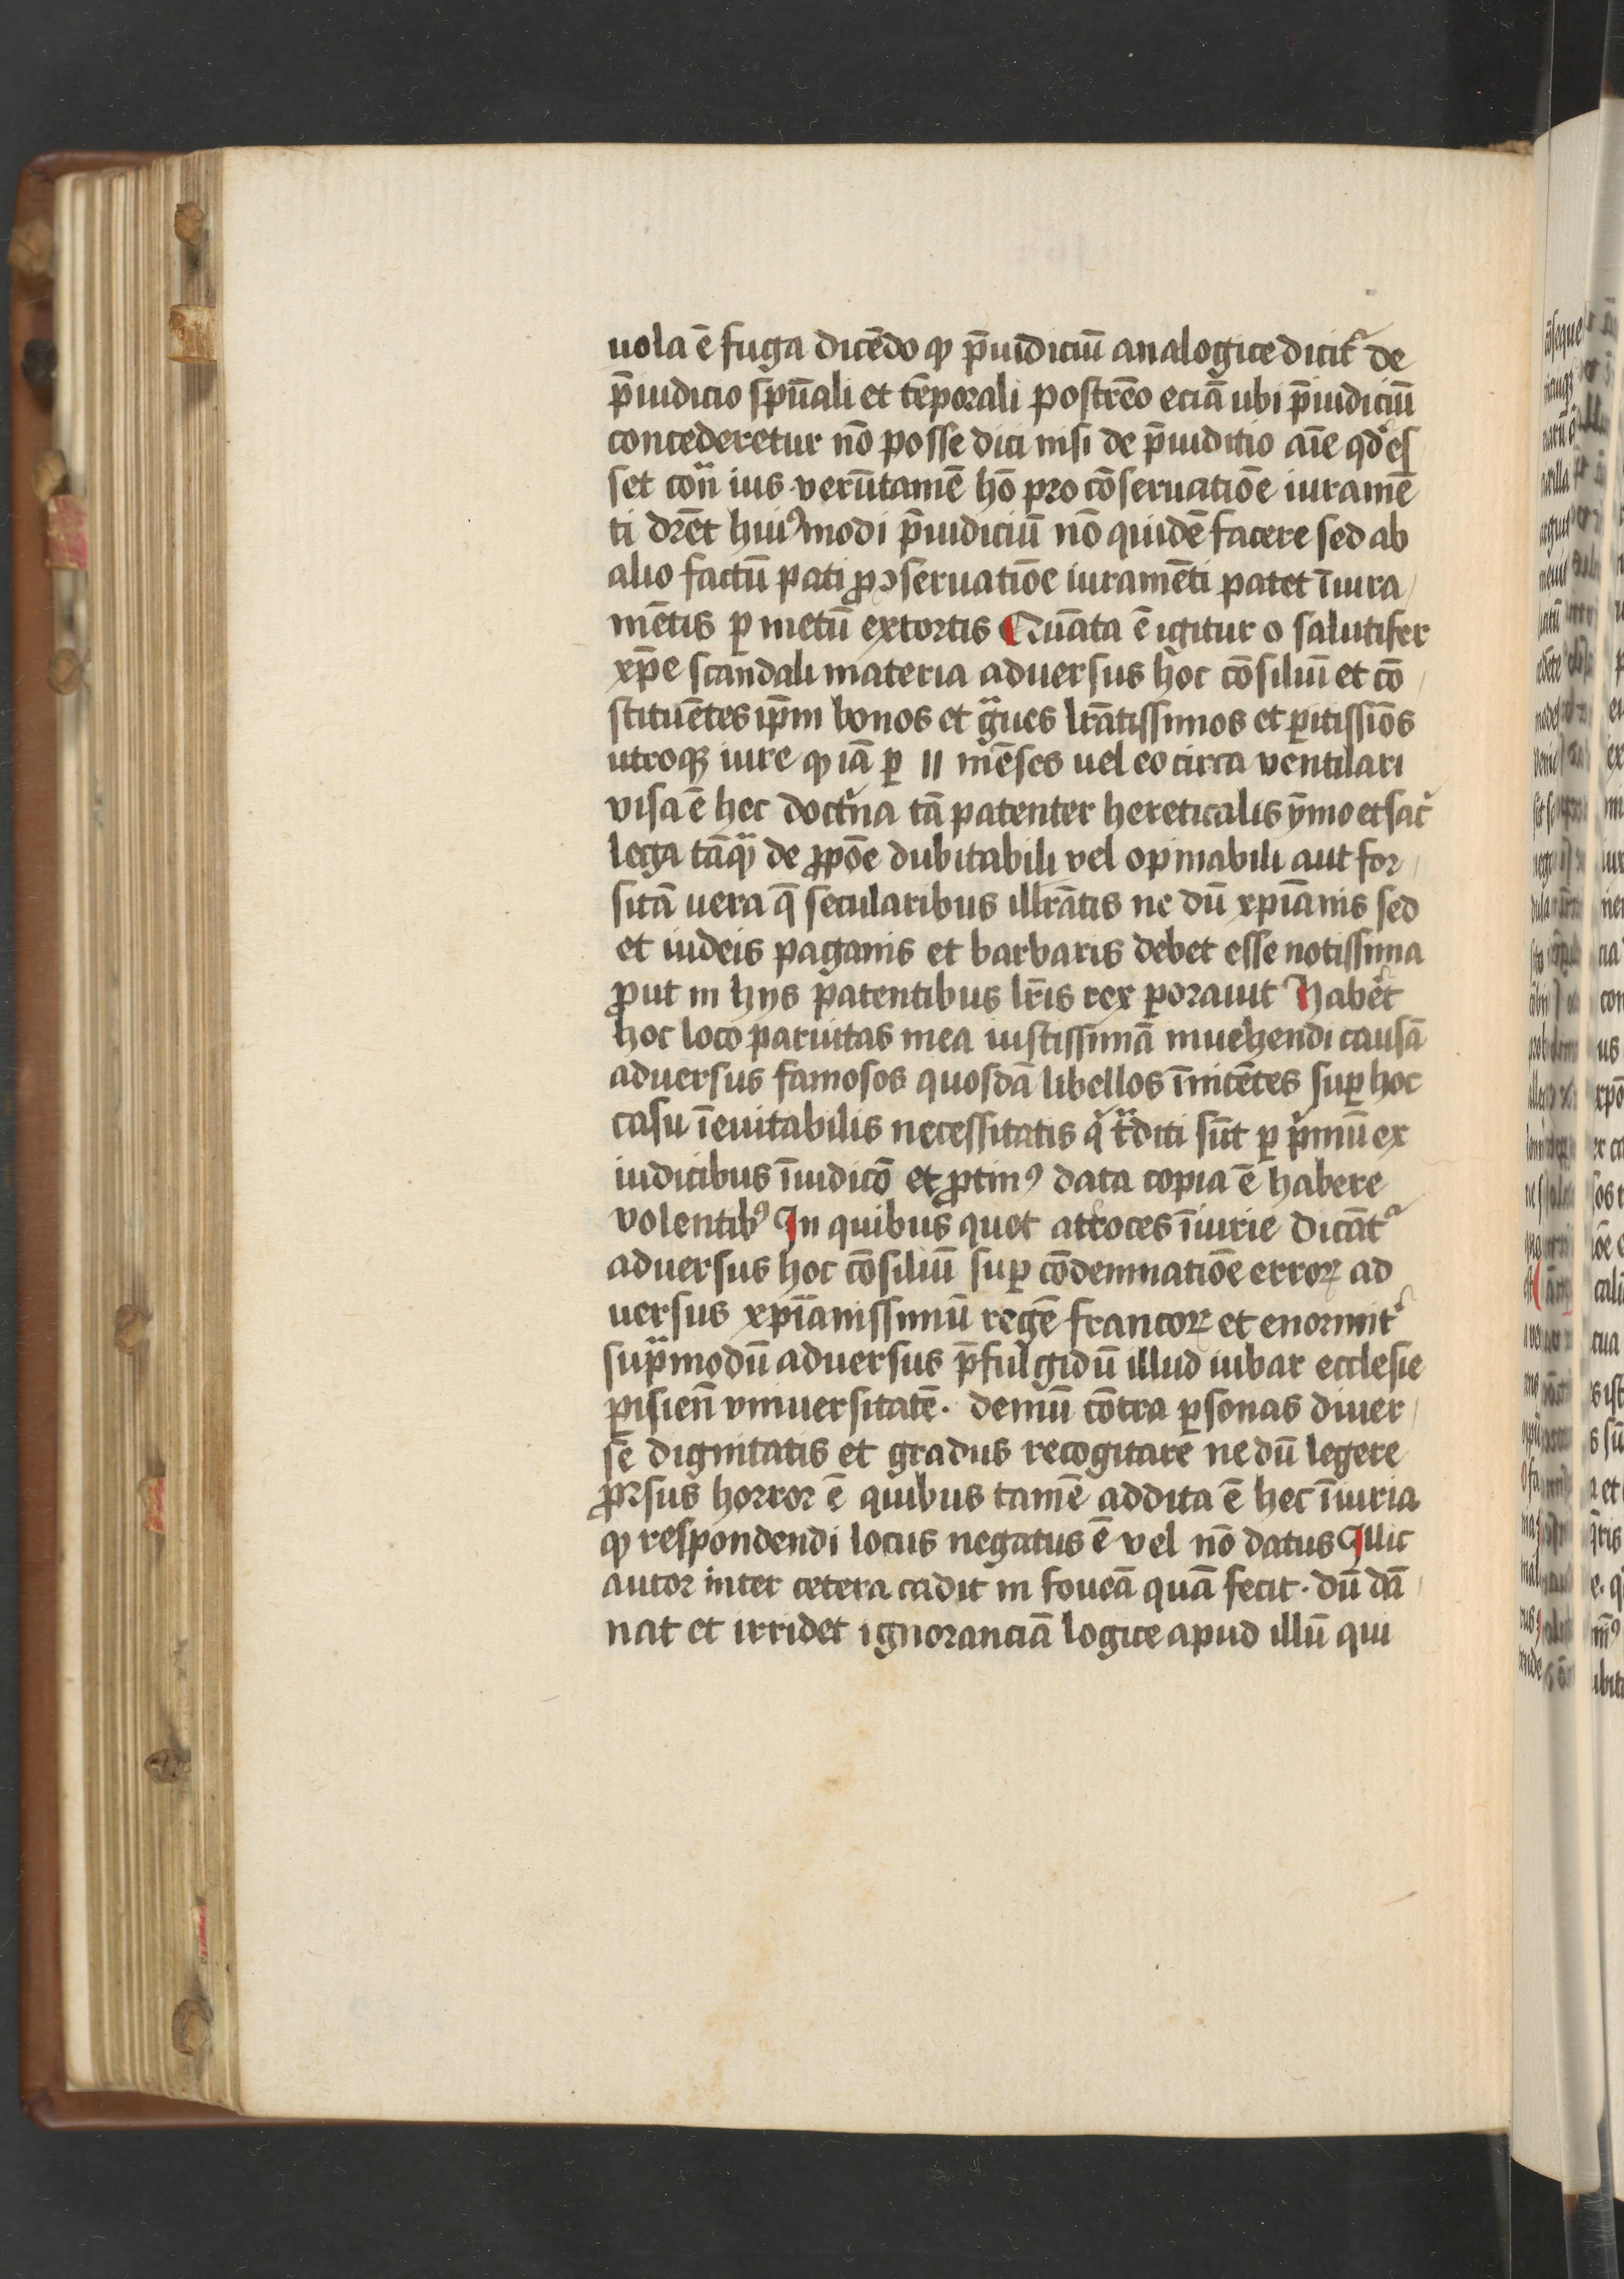 uola ē fuga dicēdo ꝙ p̄iudiciū analogice dicit᷑ de
p̄iudicio spūali et tēporali postrēo eciā ubi p̄iudiciū
concederetur nō posse dici nisi de p̄iuditio aīe qd̓ es
set con̄ ius verūtamē hō pro cōseruatiōe iuramē
ti dr̄et huiꝰmodi p̄iudiciū nō quidē facere sed ab
alio factū pati ꝓ ↄseruatiōe iuramēti patet ī iura
mētis ꝑ metū extortis Quāta ē igitur o salutifer
xp̄e scandali materia aduersus hoc cōsiliū et cō
stituētes ip̄m bonos et gͣues lr̄atissimos et ꝑitissiōs
utroqꝫ iure ꝙ iā ꝑ 11 mēses uel eo circa ventilari
visa ē hec doctͥna tā patenter hereticalis ȳmo et sacͥ
lega tāqͣ de ꝓpōe dubitabili vel opinabili aut for
sitā uera q̄ secularibus illr̄atis ne dū xp̄ianis sed
et iudeis paganis et barbaris debet esse notissima
ꝓut in hijs patentibus lr̄is rex ꝑorauit Haber̄t
hoc loco paruitas mea iustissimā inuehendi causā
aduersus famosos quosdā libellos īnitētes suꝑ hoc
casu īeuitabilis necessitatis qͥ tͣditi sūt ꝑ pͥmū ex
iudicibus ī iudicō et ꝓtinꝰ data copia ē habere
volentibꝰ In quibus quet atroces īiurie dicāt᷑
aduersus hoc cōsiliū suꝑ cōdemnatiōe erroꝝ ad
uersus xp̄ianissimū regē francoꝝ et enormit͛
supͣmodū aduersus p̄fulgidū illud iubar ecclesie
ꝑisien̄ vniuersitatē. demū cōtra ꝑsonas diuer
se dignitatis et gradus recogitare ne dū legere
ꝓrsus horror ē quibus tamē addita ē hec īiuria
ꝙ respondendi locus negatus ē vel nō datus Illic
autor inter cetera cadit in foueā quā fecit. dū dā
nat et irridet ignoranciā logice apud illū qui